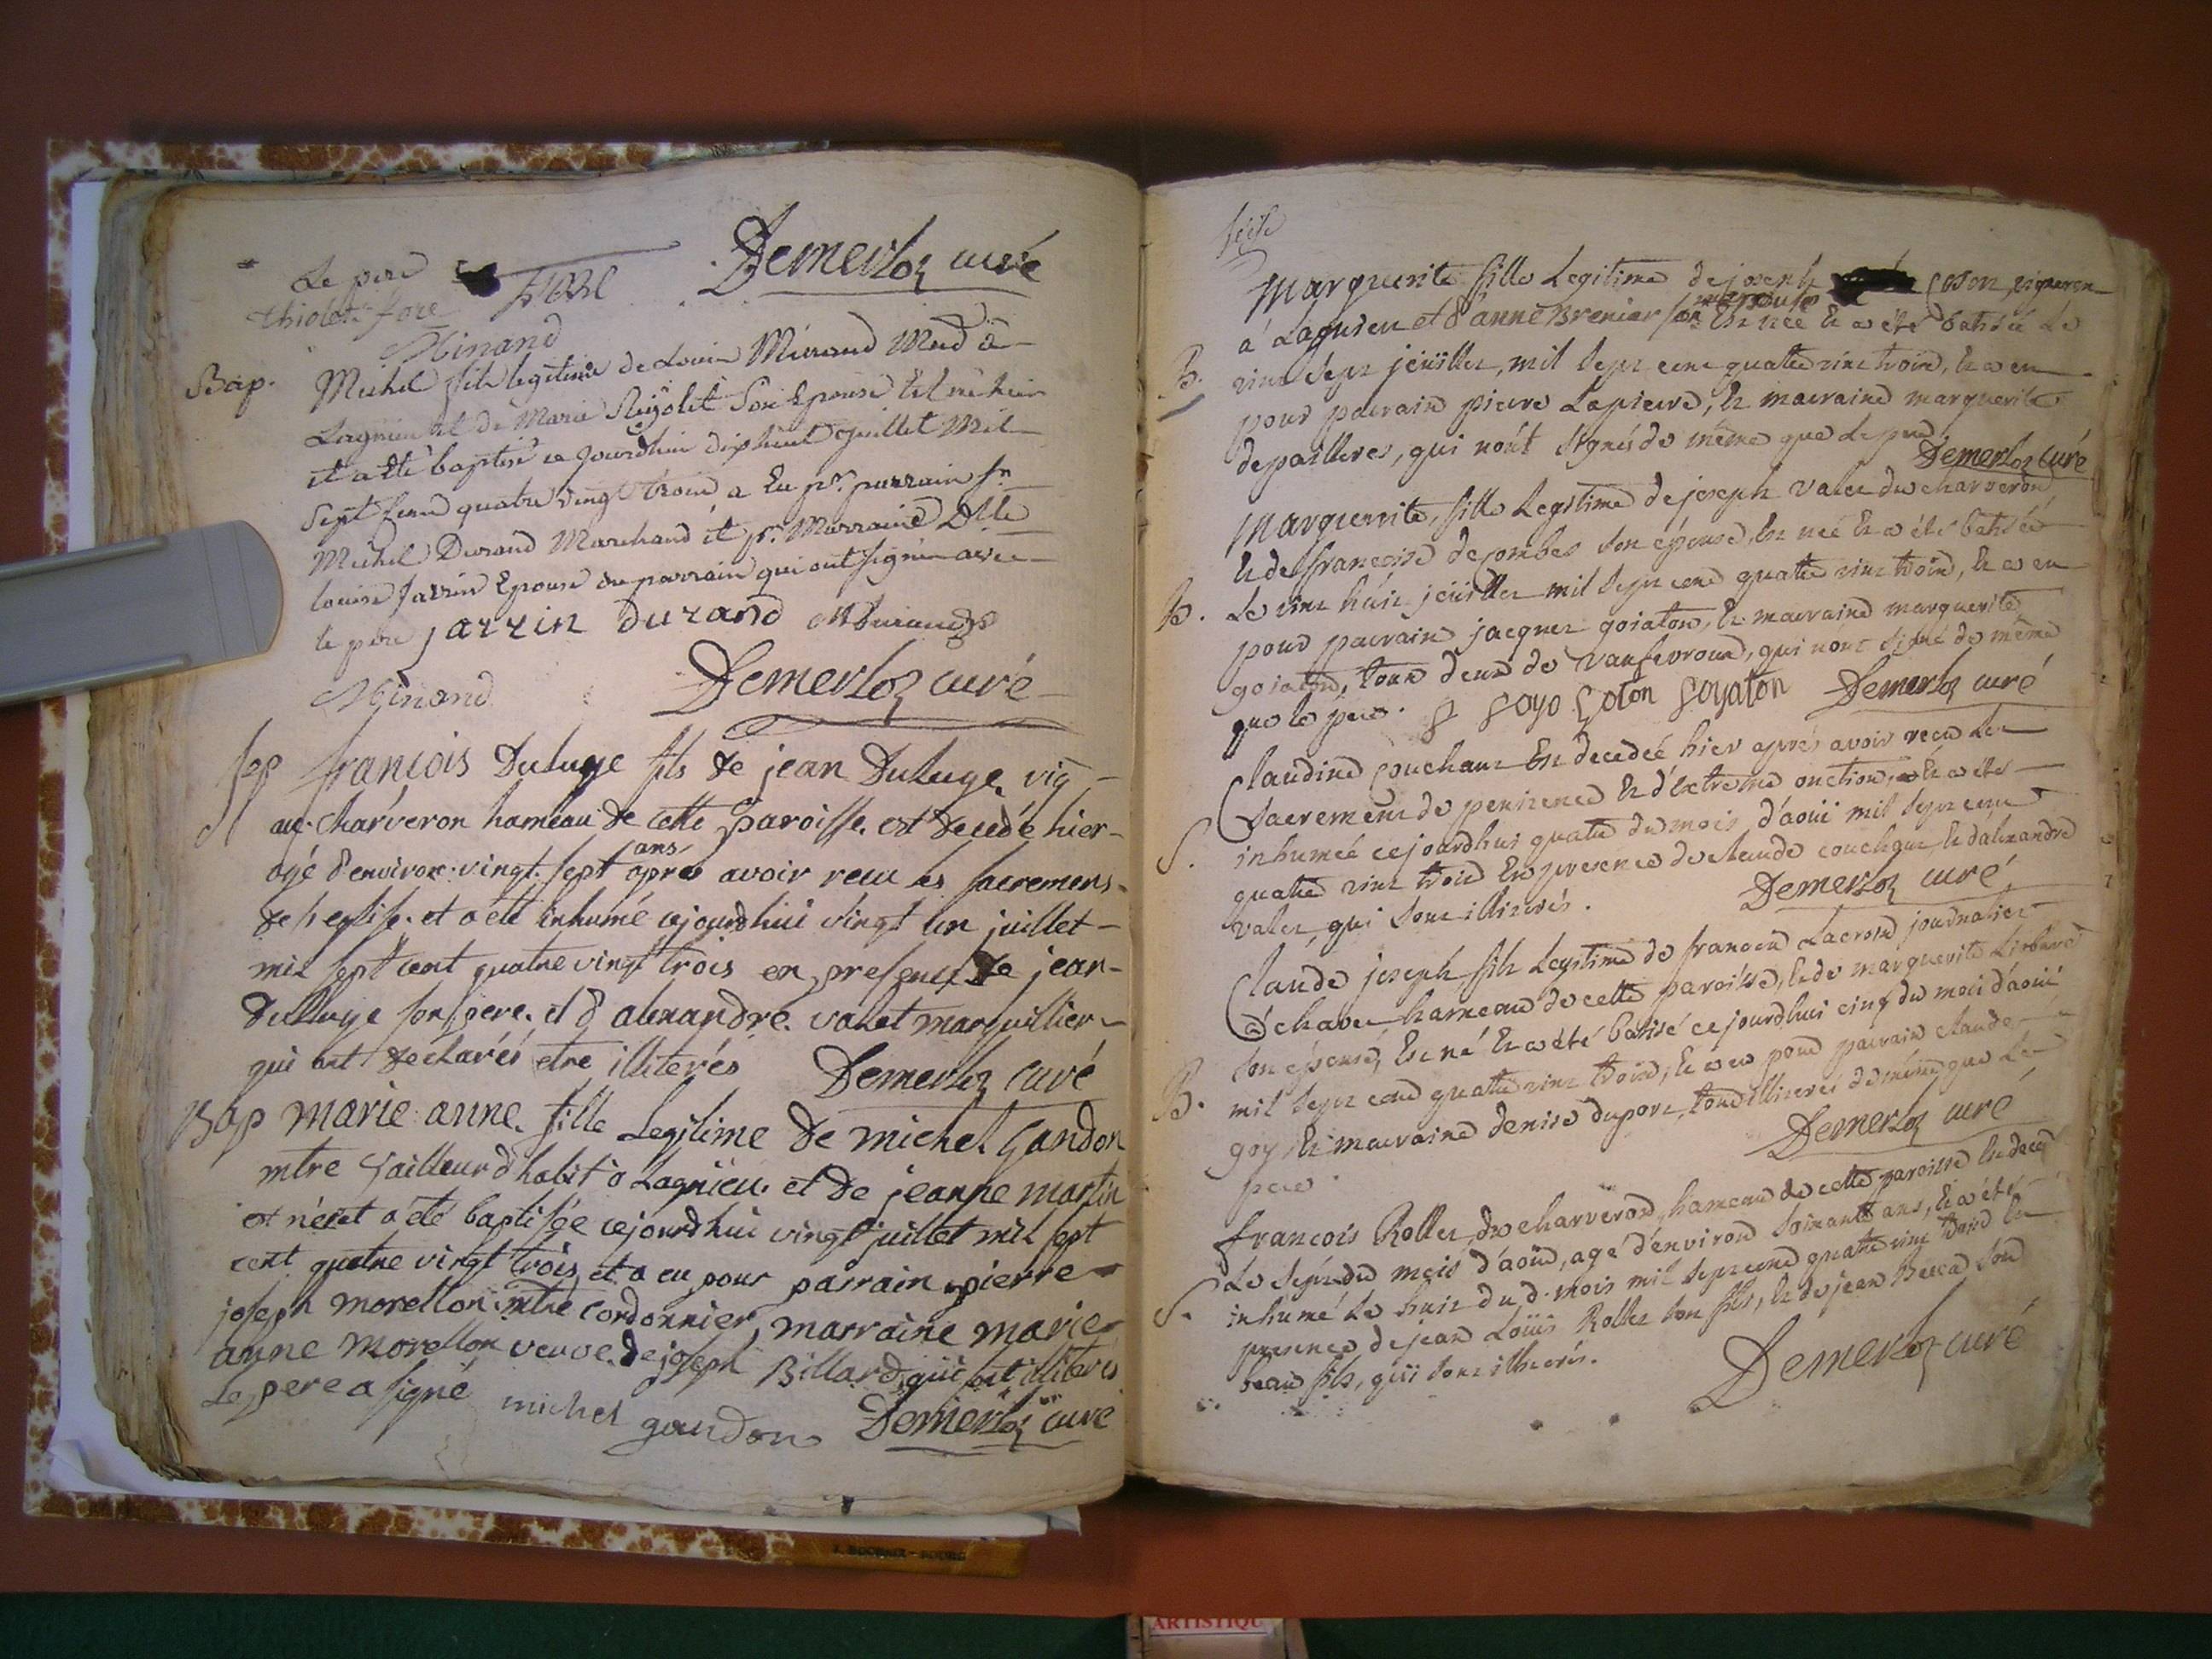 Le pere
thiolet fore
Demerloz curé
Minand
Bap. Michel fils legitime de Louis Minand Md à
Lagnieu et de Marie Rigolet Son Epouse est né hier
et a été baptisé ce jourdhui dixhuit juillet Mil
Sept Cent quatre vingt trois a Eu pr. parrain Sr.
Michel Durand Marchand et pr. Marraine Dlle
louise Jarrin Epouse du parrain qui ont signés avec
le pere jarrin durand
Minand Demerloz curé
Sep françois Duluge fils de jean Duluge vig
au charveron hameau de cette Paroisse est decedé hier
agé d'environ vingt sept ans apres avoir recu les sacremens
de l'eglise. et a été inhumé cejourdhui vingt un juillet
mil sept cent quatre vingt trois en presence de jean
dulluge son pere. et d alexandre. valet marguillier
qui ont déclarés etre illiterés Demerloz curé
Bap marie anne. fille Legitime de michel Gandon
mtre tailleur d habit à Lagnieu. et de jeanne martin
est née et a été baptisée cejourdhui vingt juillet mil sept
cent quatre vingt trois et a eu pour parrain pierre
joseph morellon mtre cordonnier, marraine marie
anne morellon veuve de joseph Billard, qui sont illiteres
Le pere a signé michel gandon Demerloz curé
seise
Marguerite fille Legitime de joseph coton, vigneron
à Lagnieu et d'anne Brenier son est née et a été batisée Le
B. vint sept jeüillet, mil sept cent quatre vint trois, et a eu
pour parrain pierre Lapierre, et marraine marguerite
depailleres, qui n'ont signés de même que Le pere Demerloz curé
Marguerite, fille Legitime de joseph valet du charveron
et de françoise decombes son épouse, est née et a été batisée
B. Le vint huit jeüillet mil sept cent quatre vint trois, et a eu
pour parrain jacques goiaton, et marraine marguerite
goiaton, tous deux de vaufevroux, qui n'ont signé de même
que le pere. Demerloz curé
Claudine couchoux est decedée hier aprés avoir recu Les
sacrements de penitence et d'extreme onction, et a été
S. inhumée cejourdhui quatre du mois d'aout mil sept cent
quatre vint trois en presence de claude couchoux et d'alexandre
valet, qui sont illiterés. Demerloz curé
Claude joseph fils Legitime de francois Lacroix journalier
hameau de cette paroisse, et de marguerite
son épouse, est né et a été batisé cejourdhui cinq du mois d'aout
B. mil sept cent quatre vint trois, et a eu pour parrain claude
goy, et marraine denise duport, tous illiterés de même que Le
pere. Demerloz curé
francois Rollet du charveron, hameau de cette paroisse est decedé
Le sept du mois d'aout, agé d'environ soixante ans, et a été
S. inhumé Le huit du d. mois mil sept cent quatre vint trois en
presence de jean Loüis Rollet son fils, et de jean son
beau fils, qui sont illiterés.
Demerloz curé
ARTISTIQU